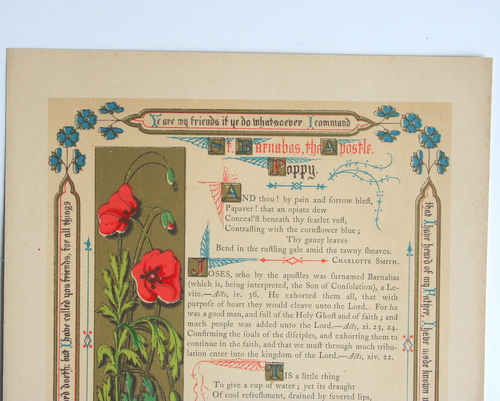 Ye are my friends if ye do whatsoever I command
St. Barnabas, the Apostle.
Poppy.
AND thou! by pain and sorrow bleſt,
Papaver! that an opiate dew
Conceal'ſt beneath thy ſcarlet veſt,
Contraſting with the cornflower blue;
Thy gauzy leaves
Bend in the ruſtling gale amid the tawny ſheaves.
CHARLOTTE SMITH.
JOSES, who by the apoſtles was ſurnamed Barnabas
(which is, being interpreted, the Son of Conſolation), a Le-
vite.—Acts, iv. 36. He exhorted them all, that with
purpoſe of heart they would cleave unto the Lord. For he
was a good man, and full of the Holy Ghoſt and of faith; and
much people was added unto the Lord.—Acts, xi. 23, 24.
Confirming the ſouls of the diſciples, and exhorting them to
continue in the faith, and that we muſt through much tribu-
lation enter into the kingdom of the Lord.—Acts, xiv. 22.
TIS a little thing
To give a cup of water; yet its draught
Of cool refreſhment, drained by fevered lips,
that I have heard of my Father, I have made known u
doeth; but I have called you friends, for all things